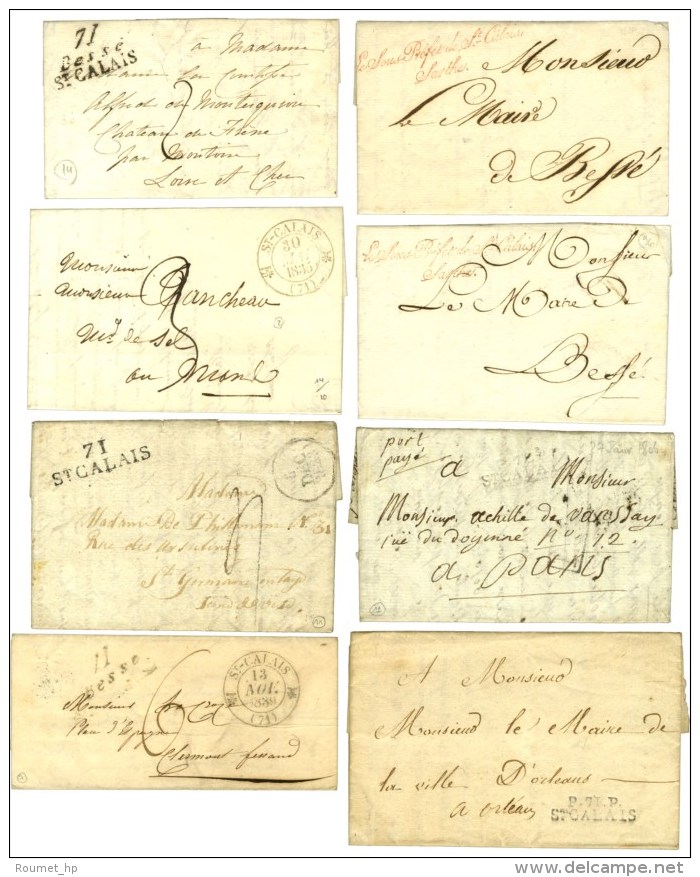 71
Besse
ST CALAIS
à Madame
Alfred de Montesquiou
Chateau de
par Montoire
Loir et Cher
14
Le Sous Préfet de St. Calais
Sarthe.
Monsieur
le Maire
de Bessé
ST-CALAIS
30
1835
(71)
Monsieur
Monsieur Plancheau
Md de sel
au Mans
Le Sous Préfet de St. Calais
Sarthe.
Monsieur
Le Maire De
Bessé
71
ST CALAIS
DEC
Madame
Madame De
Rue des Ursulines
St Germain en Lay
port
payé
a Monsieur
Monsieur achille de vassay
rue du doyenné No. 12.
a paris
11
Besse
ST-CALAIS
13
NOV.
(71)
Monsieur
Clermont ferrand
A Monsieur
Monsieur le Maire de
la ville D'orleans
a orléans
P.71.P.
ST CALAIS
Roumet_hp
delcampe.net